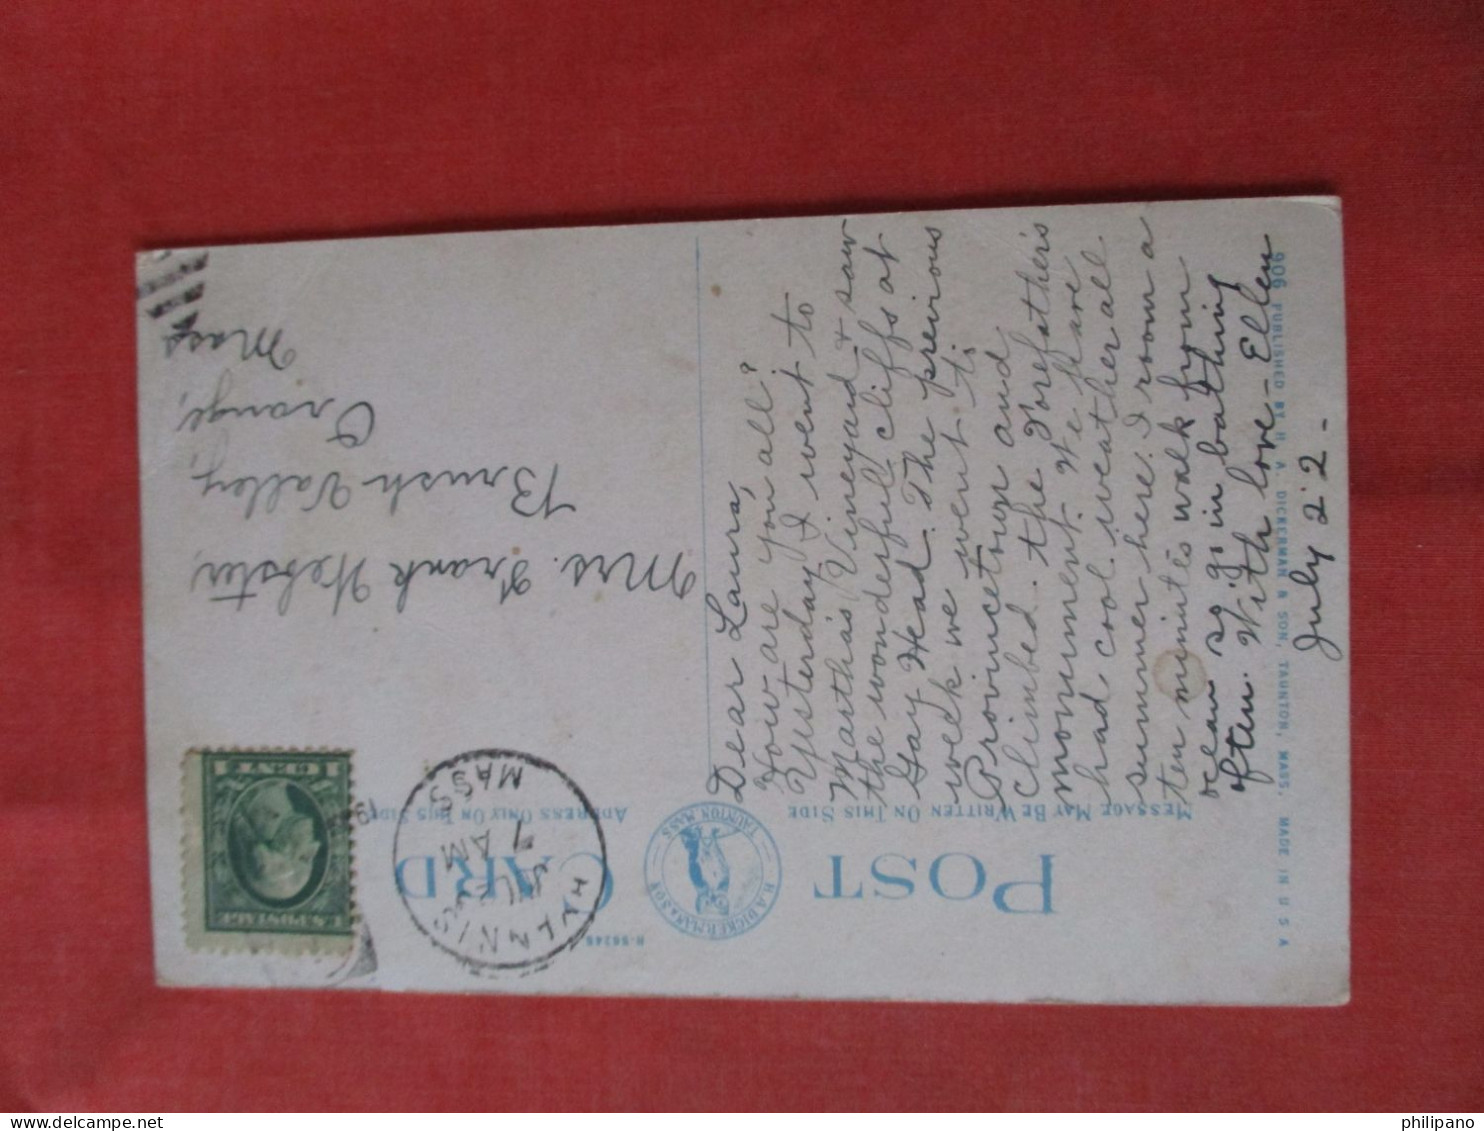 POST CARD
R-56246
H.A. DICKERMAN & SON
TAUNTON MASS.
MESSAGE MAY BE WRITTEN ON THIS SIDE
ADDRESS ONLY ON THIS SIDE
HYANNIS
JUL 23
7 AM
MASS.
U.S. POSTAGE
1 CENT 1
Dear Laura,
How are you all?
Yesterday I went to
Martha's Vineyard & saw
the wonderful cliffs at
Gay Head. The previous
week we went to
Provincetown and
climbed the Forefather's
monument. We have
had cool weather all
summer here. I room a
ten minutes walk from
ocean so go in bathing
often. With love - Ellen
July 22 -
Mrs. Frank Webster,
Brush Valley,
Orange,
Mass
906 PUBLISHED BY H. A. DICKERMAN & SON, TAUNTON, MASS. MADE IN U S A
philipano